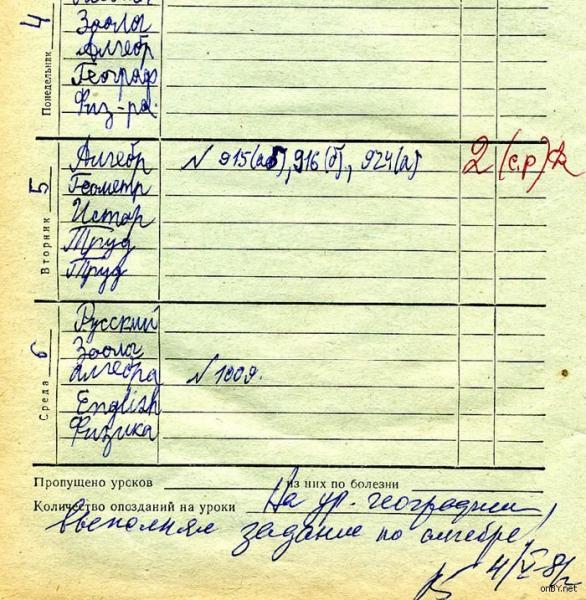 4
Понедельник
Зоолог
Алгебр
Географ
Физ-ра
5
Вторник
Алгебр № 915(аб), 916(б), 924(а) 2 (с.р)
Геометр
Истор
Труд
Труд
6
Среда
Русский
Зоолог
Алгебра № 1009.
English
Физика
Пропущено уроков из них по болезни
Количество опозданий на уроки На ур. географии
выполнял задание по алгебре!
4/V-
onBY.net